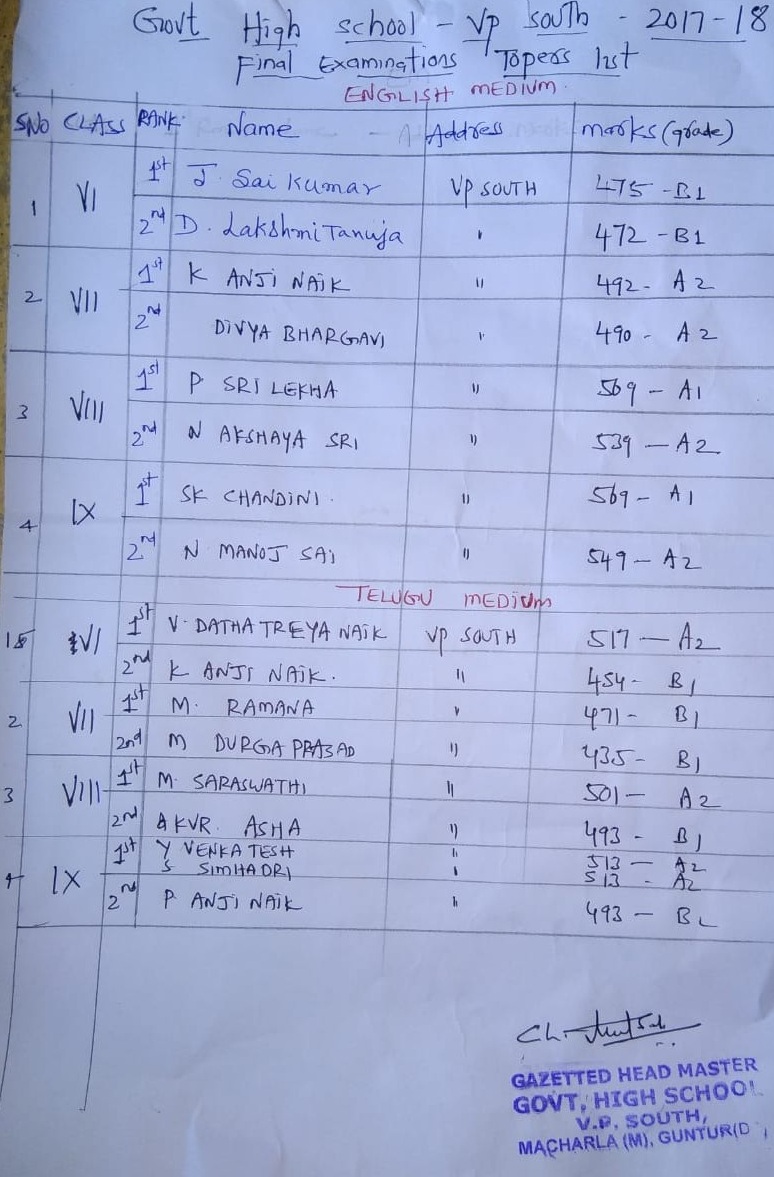 Govt High school - VP south - 2017-18
Final Examinations Topers list
ENGILISH MEDIUM
SNo CLASS RANK Name Address marks (grade)
1 VI 1st J. Sai Kumar VP SOUTH 475 - B1
2nd D. Lakshmi Tanuja " 472 - B1
2 VII 1st K ANJI NAIK " 492 - A2
2nd DIVYA BHARGAVI " 490 - A2
3 VIII 1st P SRI LEKHA " 569 - A1
2nd N AKSHAYA SRI " 539 - A2
4 IX 1st SK CHANDINI. " 569 - A1
2nd N MANOJ SAI " 549 - A2
TELUGU MEDIUM
1 VI 1st V. DATHATREYA NAIK VP SOUTH 517 - A2
2nd K ANJI NAIK. " 454 - B1
2 VII 1st M. RAMANA " 471 - B1
2nd M DURGA PRASAD " 435 - B1
3 VIII 1st M. SARASWATHI " 501 - A2
2nd KVR. ASHA " 493 - B1
4 IX 1st Y VENKATESH " 513 - A2
S SIMHADRI " 513 - A2
2nd P ANJI NAIK " 493 -
GAZETTED HEAD MASTER
GOVT, HIGH SCHOOL
V.P. SOUTH,
MACHARLA (M), GUNTUR(D